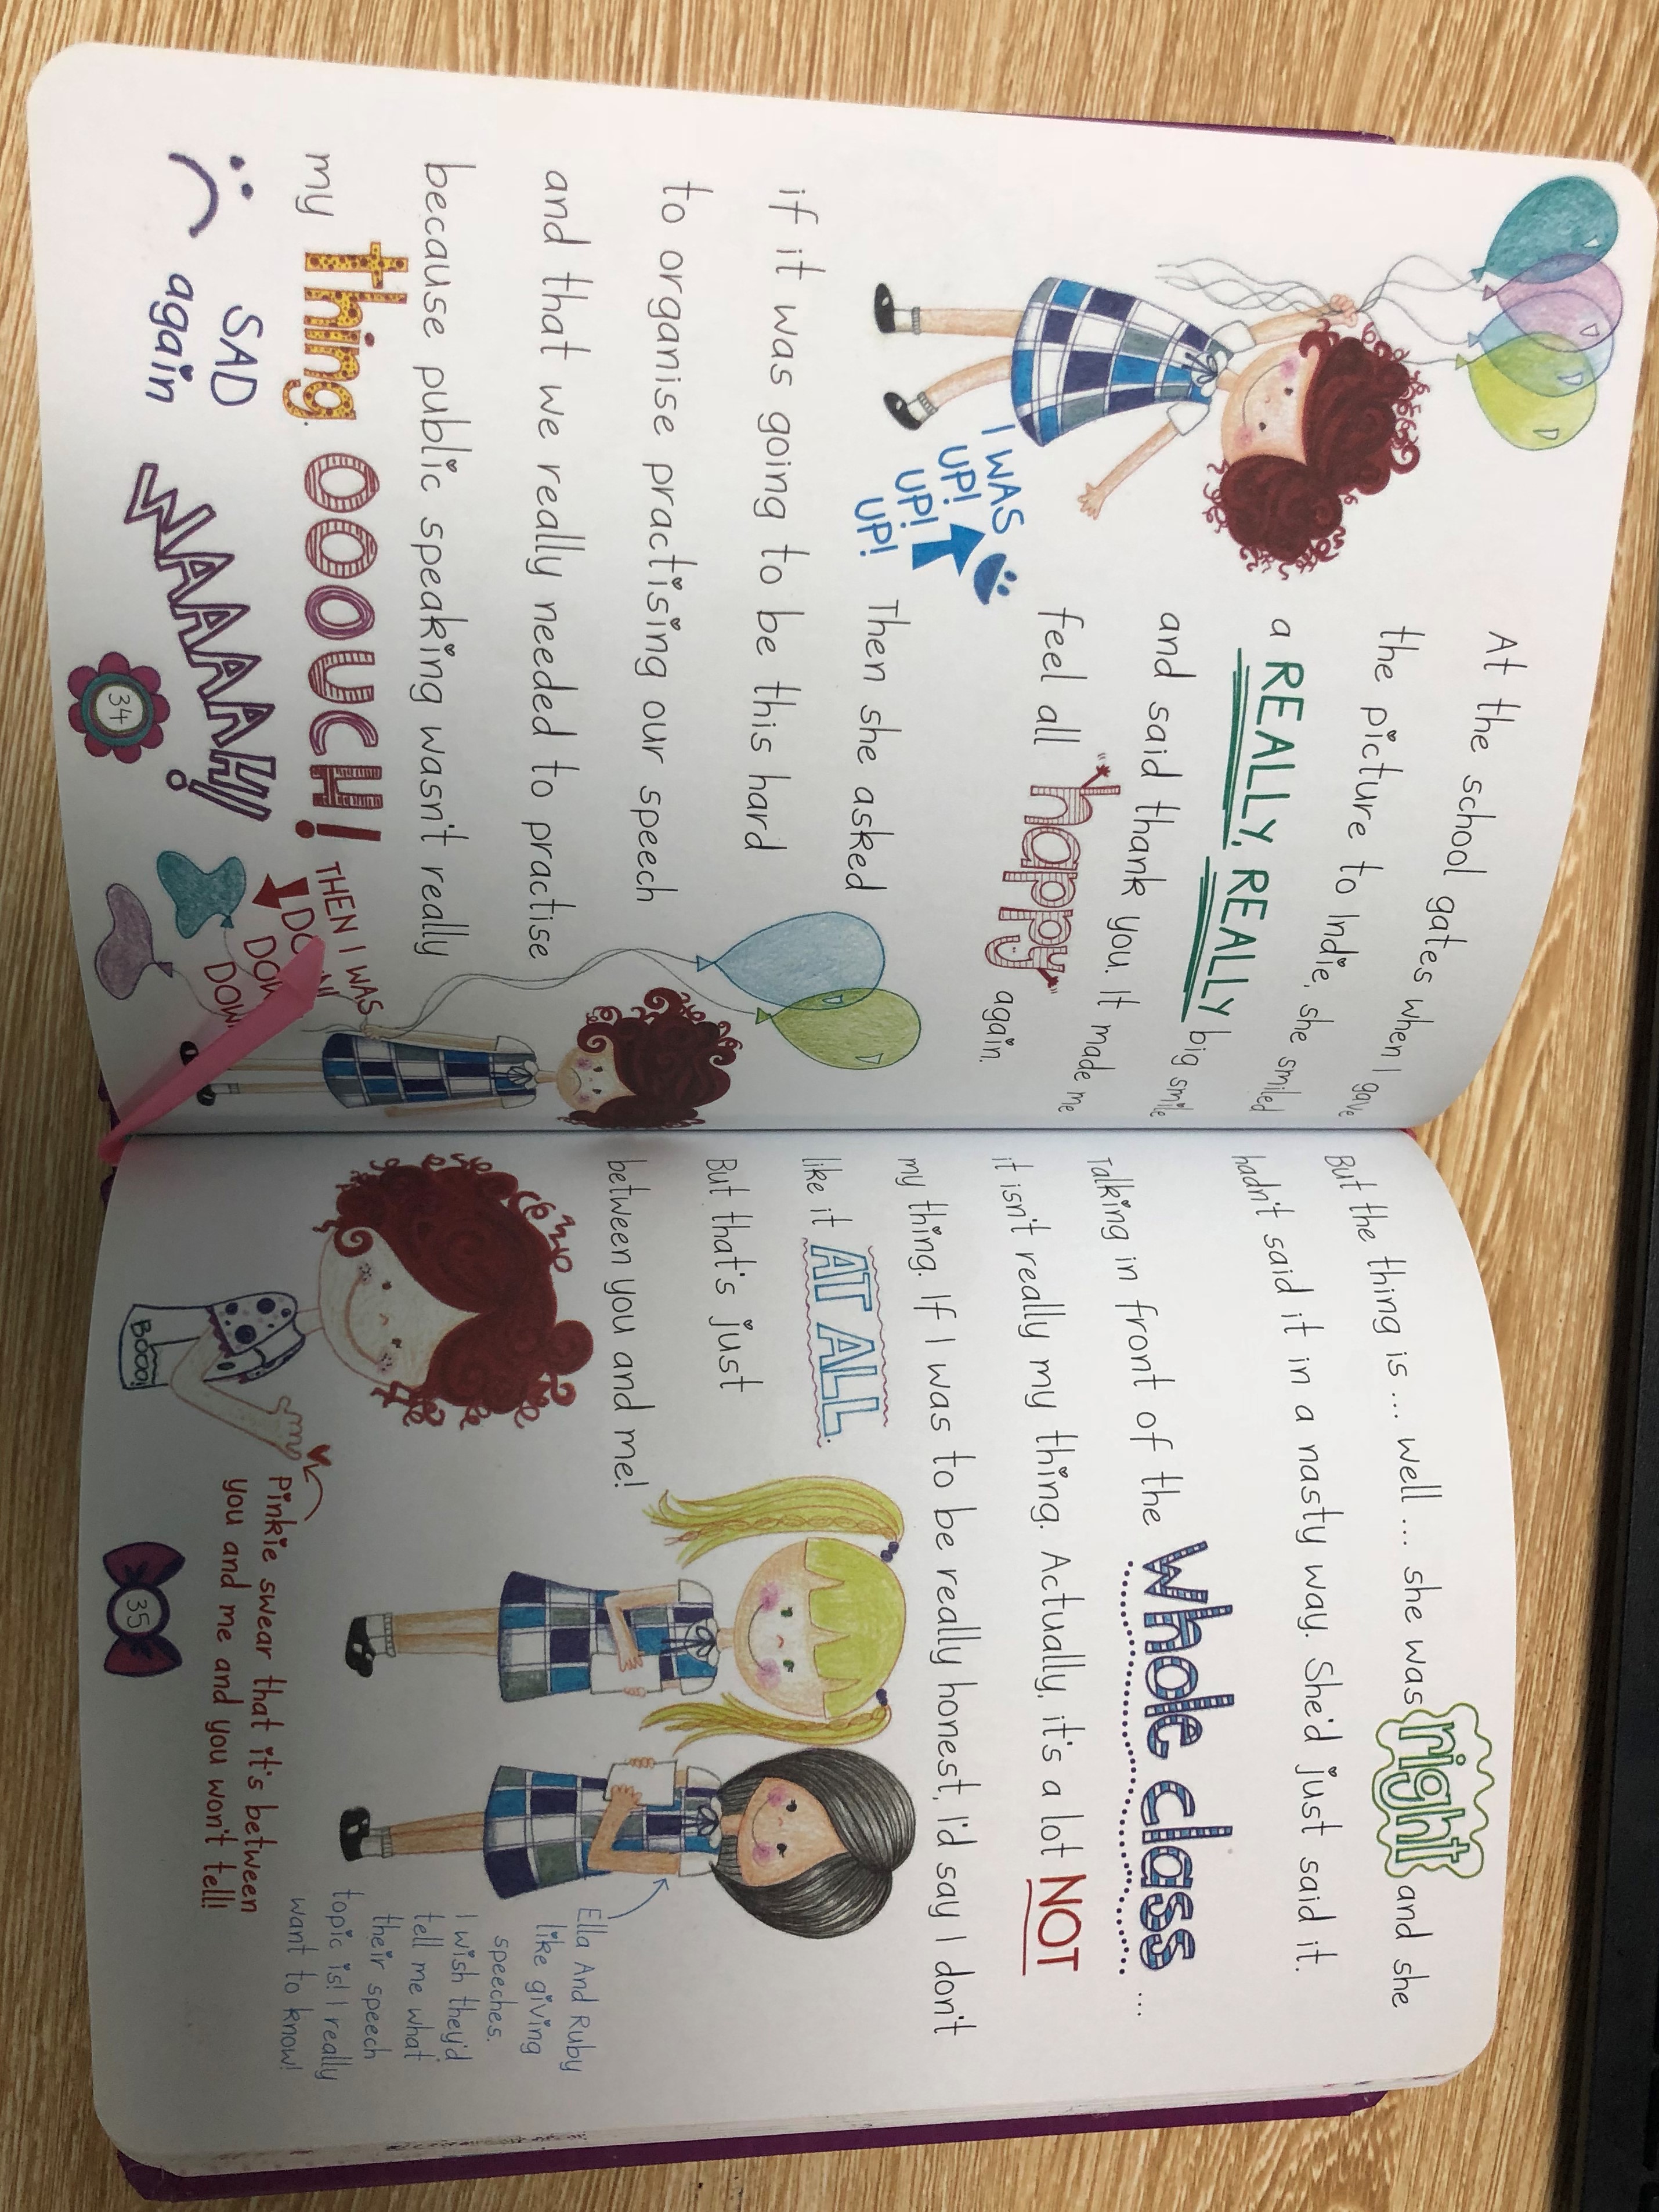 At the school gates when I gave
the picture to Indie, she smiled
a REALLY, REALLY big smile
and said thank you. It made me
feel all "happy" again.
I WAS
UP!
UP!
UP!
Then she asked
if it was going to be this hard
to organise practising our speech
and that we really needed to practise
because public speaking wasn't really
my thing. OOOUCH!
SAD
again
WAAAAH!!
THEN I WAS
34
But the thing is... well... she was right and she
hadn't said it in a nasty way. She'd just said it.
Talking in front of the whole class...
it isn't really my thing. Actually, it's a lot NOT
my thing. If I was to be really honest, I'd say I don't
like it AT ALL.
But that's just
between you and me!
BOOO!
Pinkie swear that it's between
you and me and you won't tell!
Ella And Ruby
like giving
speeches.
I wish they'd
tell me what
their speech
topic is! I really
want to know!
35